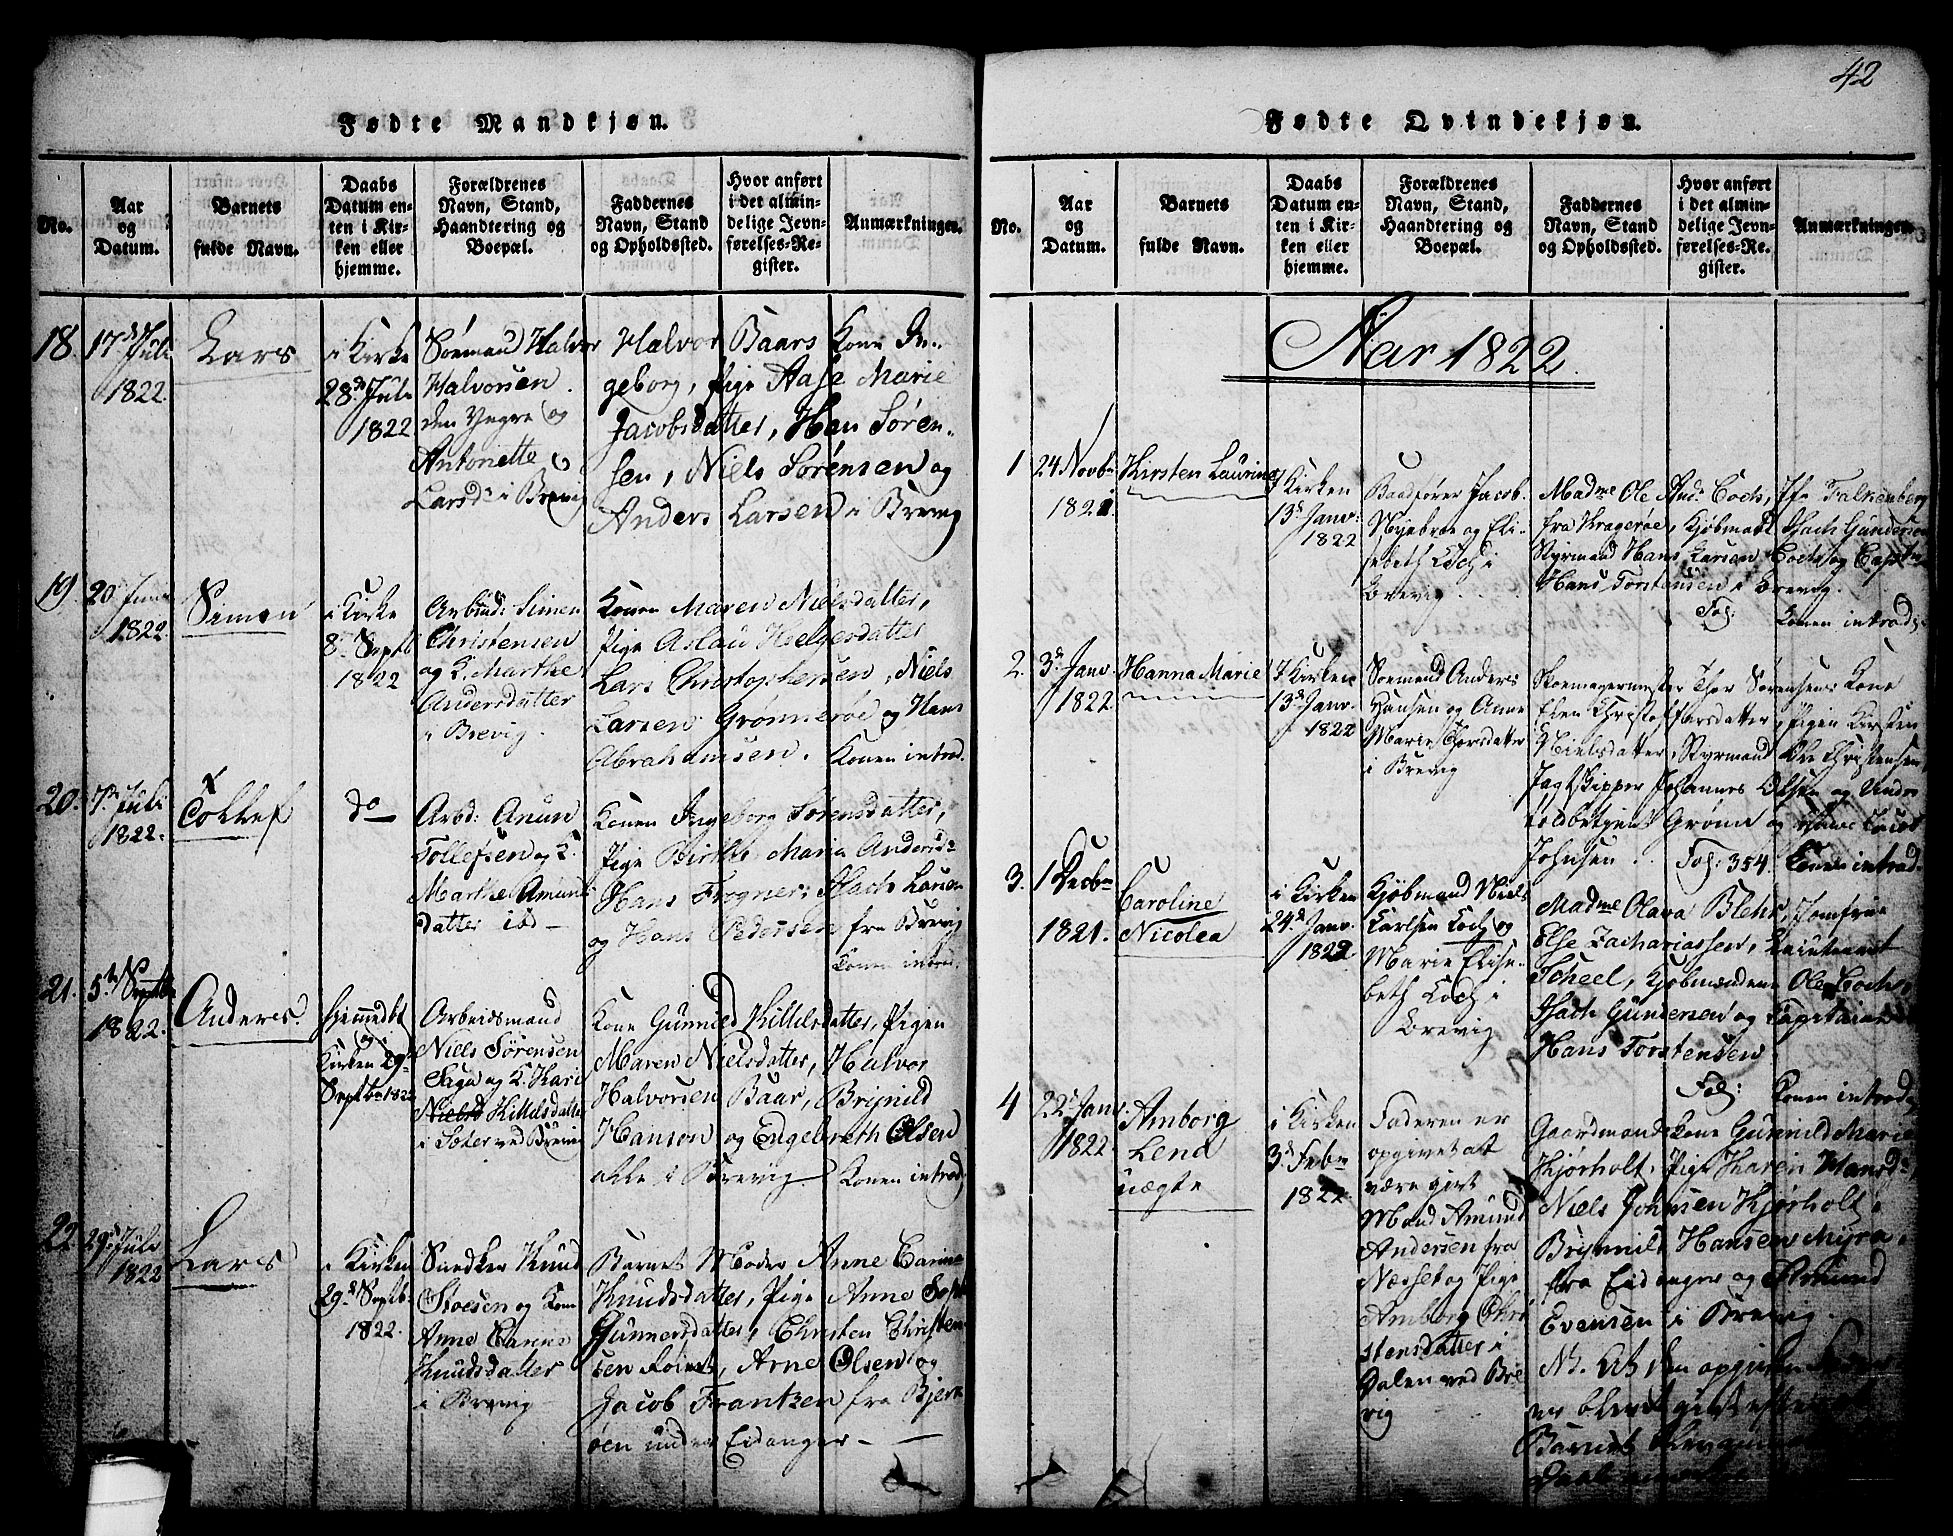 42
Fødte Mandkjøn.
No.
Aar
og
Datum.
Barnets
fulde Navn.
Daabs
Datum en-
ten i Kir-
ken eller
hjemme.
Forældrenes
Navn, Stand,
Haandtering og
Boepæl.
Faddernes
Navn, Stand
og Opholdssted.
Hvor anført
i det almin-
delige Jevn-
førelses-Re-
gister.
Anmærkninger.
18.
17de Juli
1822.
Lars
i Kirke
28de Juli
1822
Søemand Halvor
Halvorsen
den Yngre og
Antonette
Larsdr i Brevig
Halvor Baars Kone In-
geborg, Pige Aase Marie
Jacobsdatter, Han Søren-
sen, Niels Sørensen og
Anders Larsen i Brevig
19.
20 Juni
1822.
Simen
i Kirke
8de Septb
1822
Arbmd: Simen
Christensen
og K. Marthe
Andersdatter
i Brevig.
Konen Maren Nielsdatter,
Pige Aslau Helgesdatter
Lars Christophersen, Niels
Larsen Grønnerøe og Hans
Abrahamsen. Konen introd.
20.
7de Juli
1822.
Tollef
do
Arbd: Anun
Tollefsen og K.
Marthe Amund
datter ibd
Konen Ingeborg Sørensdatter,
Pige Birthe Maria Andersdr
Hans Frogner, Isach Larsen
og Hans Pedersen fra Brevig
Konen introd.
21.
5te Septbr
1822.
Anders.
Hjemmedbt
og
Kirken 29de
Septbr 1822
Arbeidsmand
Niels Sørensen
Saga og K. Kari
Kittelsdatter
i Sæter ved Brevig
Kone Gunnild Kittilsdatter, Pigen
Maren Nielsdatter, Halvor
Halvorsen Baar, Brynild
Hanson og Engelbreth Olsen
alle i Brevig Konen introd.
22
29de Juli
1822
Lars
i Kirken
29de Septb.
1822.
Snedker Knud
Stoesen og Kone
Anne Carine
Knudsdatter
i Brevig
Barnets Moder Anne Carine
Knudsdatter, Pige Anne Soph
Gunnersdatter, Christen Christen-
sen, Arne Olsen og
Jacob Frantzen fra Bjerk
øen under Eidanger
Fødte Qvindekjøn.
No.
Aar
og
Datum.
Barnets
fulde Navn.
Daabs
Datum en-
ten i Kir-
ken eller
hjemme.
Forældrenes
Navn, Stand,
Haandtering og
Boepæl.
Faddernes
Navn, Stand
og Opholdssted.
Hvor anført
i det almin-
delige Jevn-
førelses-Re-
gister.
Anmærkninger.
Aar 1822.
1
24 Novbr
1821.
Kirsten Laurine
i Kirken
13de Janv:
1822
Baadfører Jacob
Nyebroe og Eli-
sebeth Koch i
Brevig
Madme Ole Ands Coch, Jfr Falkenberg
fra Kragerøe, Kjøbmand Isach Gundersen
Styrmand Hans Larsen Coch og Captn
Hans Torstensen i Brevig.
Fol: Konen introd.
2.
3de Janv.
1822
Hanna Marie
i Kirken
13de Janv.
1822
Søemand Anders
Hansen og Anne
Marie Thorsdatter
i Brevig
Skoemagermester Thor Sørensens Kone
Elen Christophersdatter, Pigen Kirsten
Nielsdatter, Styrmand Ole Christensen
Jagtskipper Johannes Olsen og Under
toldbetjent Grøme og
Johnsen. Fol: 354. Konen introd
3.
1 Decbr
1821.
Caroline
Nicolea
i Kirken
24de Janv.
1822
Kjøbmand Niels
Carlsen Coch og
Marie Elise-
beth Koch i
Brevig
Madme Olava Blehr, Jomfrue
Else Zachariassen, Lieutenant
Scheel, Kjøbmændene Ole Coch,
Isach Gundersen og Capitain
Hans Torstensen
Fol: Konen introd.
4
22de Janv.
1822
Amborg
Lena
uægte
i Kirken
3de Febr
1822
Faderen er
opgivet at
være gift
Mand Amund
Andersen fra
Næsset og Pige
Amborg Chri
stensdatter i
Dalen ved Bre
vig
Gaardmands Kone Gunnild Marie
Kjørholt, Pige Karen Hansdr
Niels Johnsen Kjørholt,
Brynnild Hansen Myra,
fra Eidanger og Amund
Evensen i Brevig.
At den opgivne Fader
er blevet gift efter at
Barnets